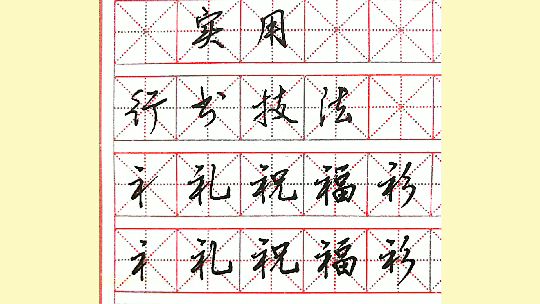 实用
行书技法
礻礼祝福衫
礻礼祝福衫